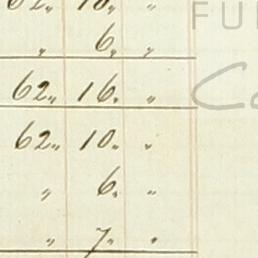 62 „ 10 „ „
„ 6 „ „
62 „ 16 „ „
62 „ 10 „ „
„ 6 „ „
„ 7 „ „